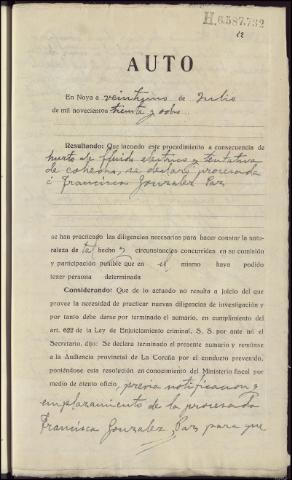 H.6587.732
12
AUTO
En Noya a veintiuno de Julio
de mil novecientos treinta y ocho.
Resultando: Que incoado este procedimiento a consecuencia de
hurto de fluido eléctrico y tentativa
de cohecho, se declaró procesada
a Francisca Gonzalez Paz
se han practicado las diligencias necesarias para hacer constar la natu-
raleza de tal hecho y circunstancias concurridas en su comisión
y participación punible que en el mismo haya podido
tener persona determinada
Considerando: Que de lo actuado no resulta a juicio del que
provee la necesidad de practicar nuevas diligencias de investigación y
por tanto debe darse por terminado el sumario, en cumplimiento del
art. 622 de la Ley de Enjuiciamiento criminal, S. S. por ante mí el
Secretario, dijo: Se declara terminado el presente sumario y remítase
a la Audiencia provincial de La Coruña por el conducto prevenido,
poniéndose esta resolución en conocimiento del Ministerio fiscal por
medio de atento oficio, previa notificacion y
emplazamiento de la procesada
Francisca Gonzalez Paz, para que